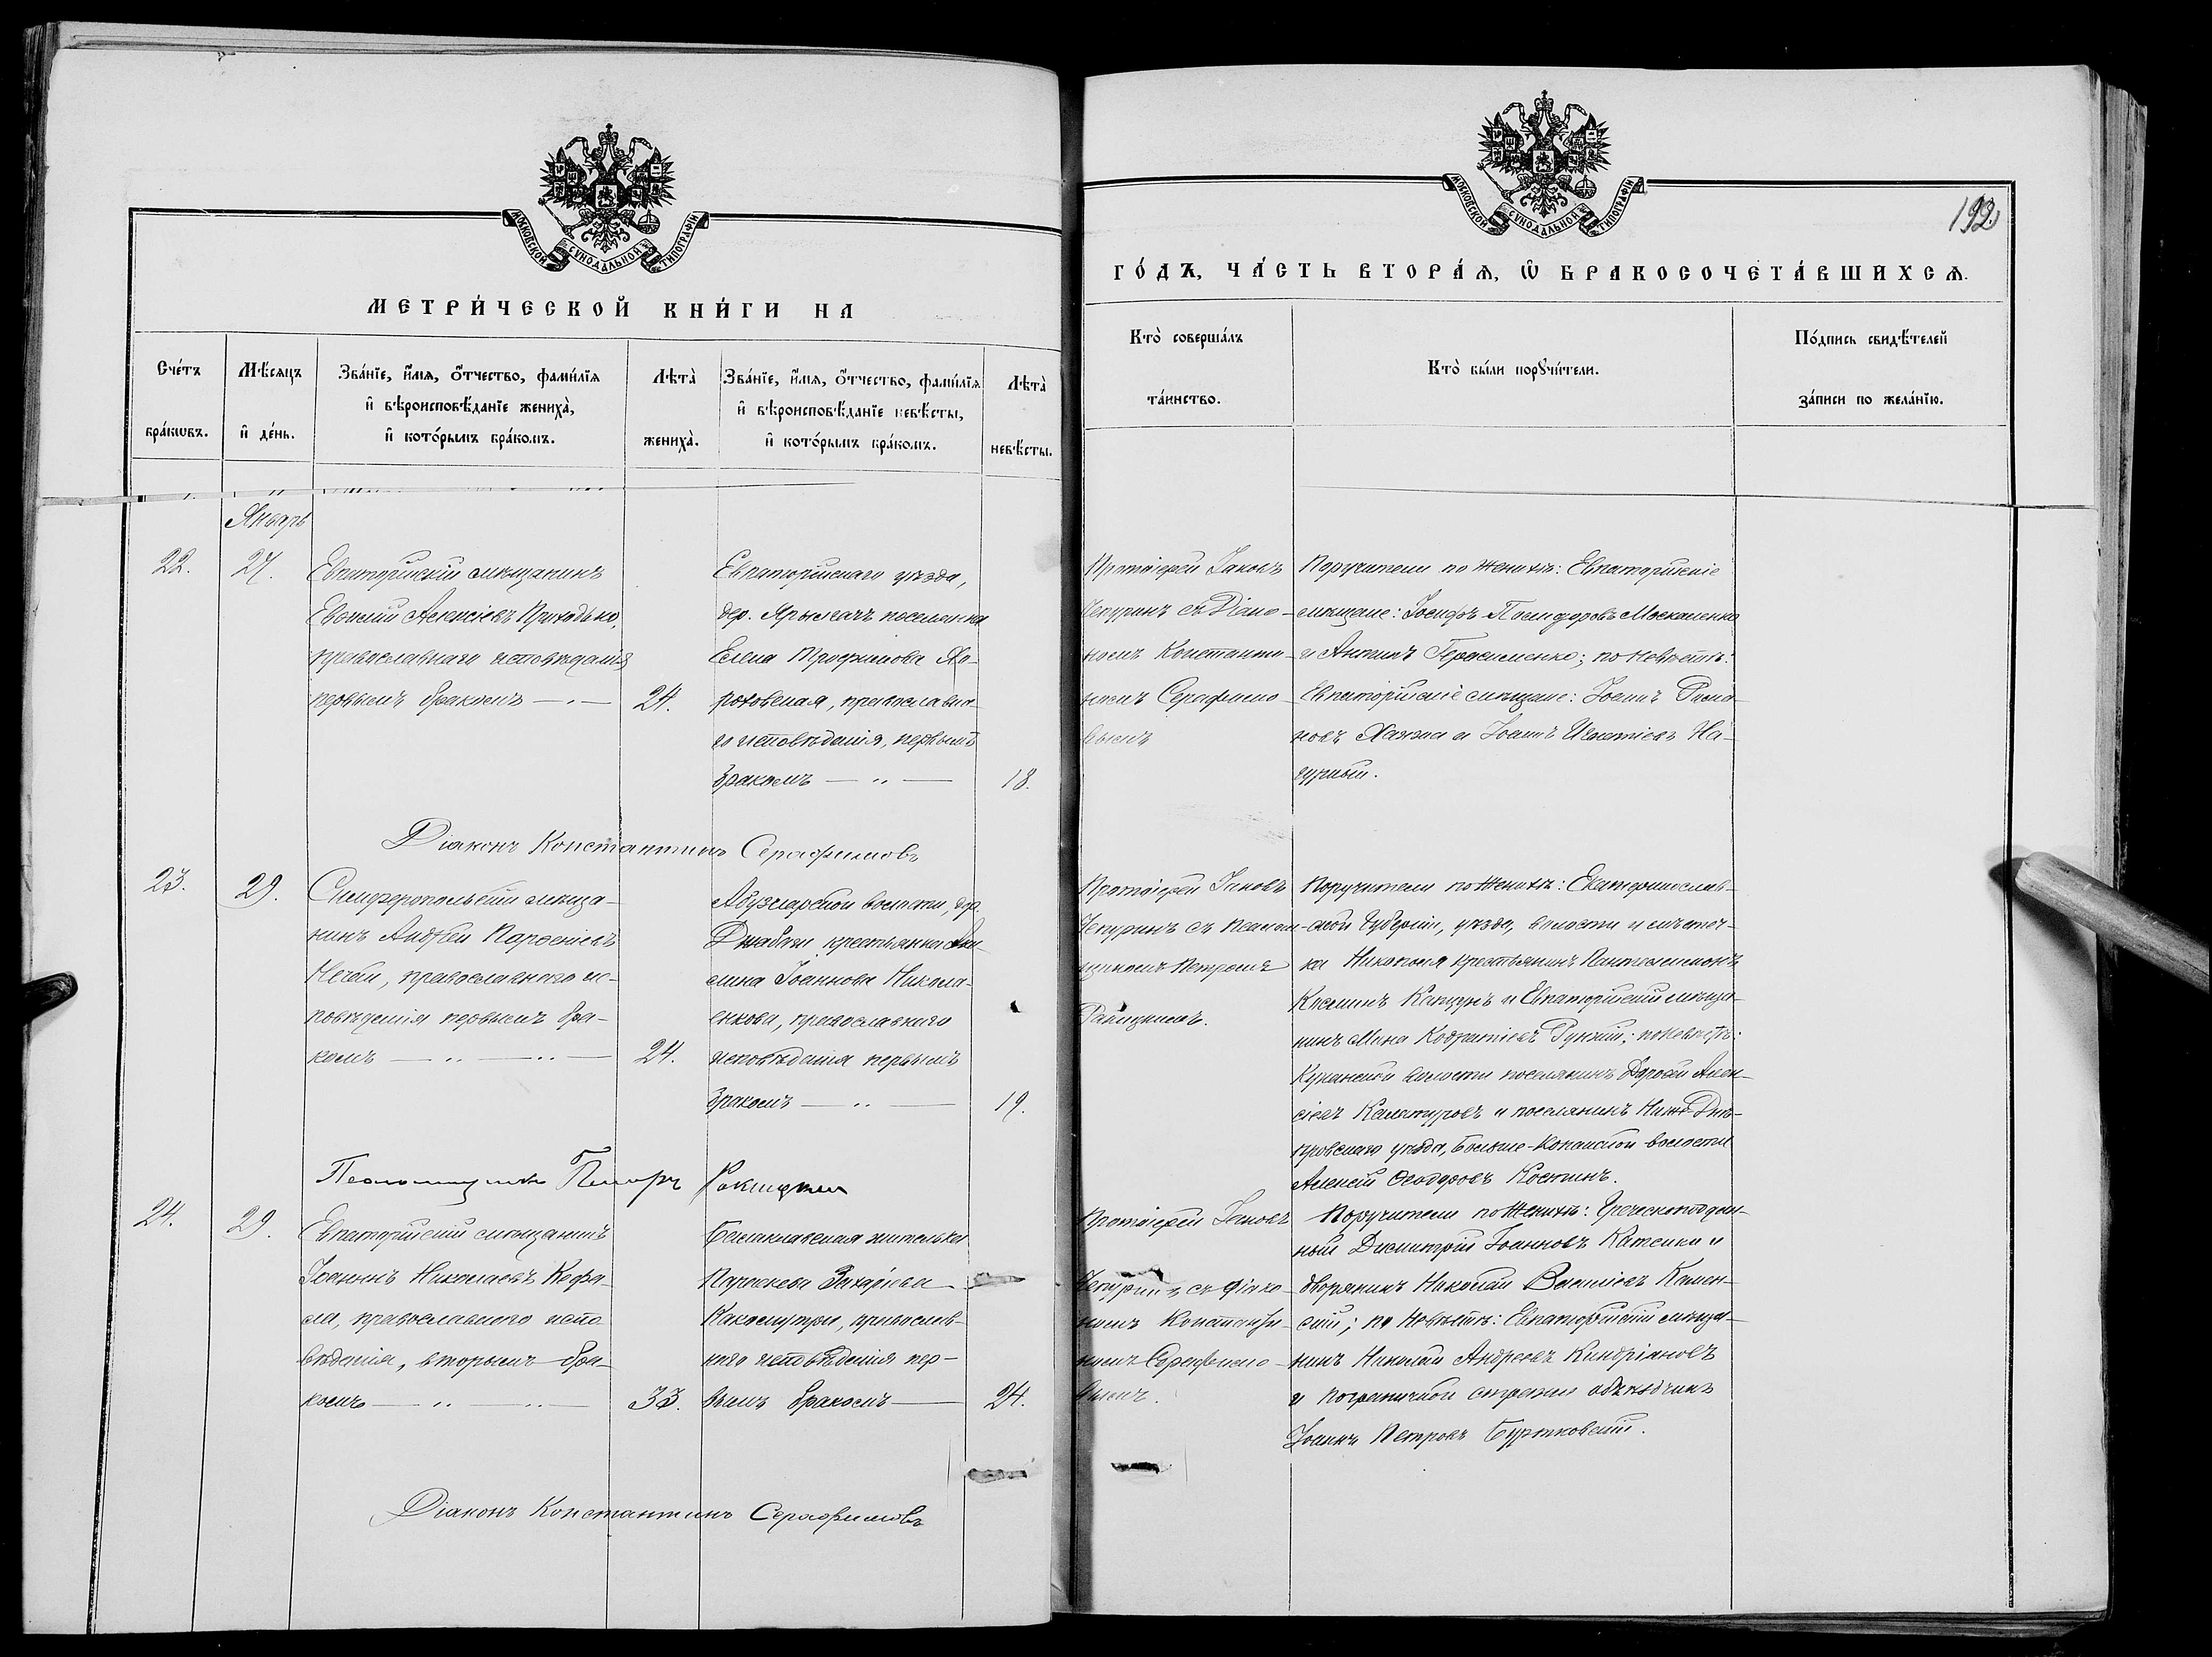 МОСКОВСКОЙ СѴНОДАЛЬНОЙ ТИПОГРАФІИ
МЕТРИ́ЧЕСКОЙ КНИ́ГИ НА
Сче́тъ
бра́кѡвъ.
Мѣ́сяцъ
и҆ де́нь.
Зва́нїе, и҆́мѧ, ѻ҆́тчество, фами́лїѧ
и҆ вѣроисповѣ́данїе жениха̀,
и҆ кото́рымъ бра́комъ.
Лѣта̀
жениха̀.
Зва́нїе, и҆́мѧ, ѻ҆́тчество, фами́лїѧ
и҆ вѣроисповѣ́данїе невѣ́сты,
и҆ кото́рымъ бра́комъ.
Лѣта̀
невѣ́сты.
Январь
22.
27.
Евпаторійскій мѣщанинъ
Евсевій Алексіевъ Приходько,
православнаго исповѣданія
первымъ бракомъ — „ —
24.
Евпаторійскаго уѣзда,
дер. Ярылгачъ поселянка
Елена Трофимова
православна-
го исповѣданія, первымъ
бракомъ — „ —
18.
Діаконъ Константинъ Серафимовъ
23.
29.
Симферопольскій мѣща-
нинъ Андрей Парѳеніевъ
Нечай, православнаго ис-
повѣданія первымъ бра-
комъ — „ — „ —
24.
Абузларской волости, дер.
Джабачи крестьянка Аки-
лина Іоаннова Никола-
енкова, православнаго
исповѣданія первымъ
бракомъ — „ —
19.
Псаломщикъ Петръ Ракицкій
24.
29.
Евпаторійскій мѣщанинъ
Іоаннъ Николаевъ Кефа-
ла, православнаго испо
вѣданія, вторымъ бра-
комъ — „ — „ —
33.
Балаклавская жителька
Параскева Захаріева
православ-
наго исповѣданія пер-
вымъ бракомъ —
24.
Діаконъ Константинъ Серафимовъ
МОСКОВСКОЙ СѴНОДАЛЬНОЙ ТИПОГРАФІИ
192
ГО́ДЪ, ЧА́СТЬ ВТОРА́Ѧ, Ѽ БРАКОСОЧЕТА́ВШИХСѦ.
Кто̀ соверша́лъ
та́инство.
Кто̀ бы́ли порꙋчи́тели.
По́дпись свидѣ́телей
за́писи по жела́нїю.
Протоіерей Іаковъ
Чепуринъ съ Діако-
номъ Константи-
номъ Серафимо-
вымъ
Поручители по женихѣ: Евпаторійскіе
мѣщане: Іосифъ Москаленко
и Антонъ Герасименко; по невѣстѣ:
Евпаторійскіе мѣщане: Іоаннъ
и Іоаннъ Игнатіевъ На-
гурный.
Протоіерей Іаковъ
Чепуринъ съ псалом-
щикомъ Петромъ
Ракицкимъ.
Поручители по женихѣ: Екатеринослав-
ской губерніи, уѣзда, волости и мѣстеч-
ка Никополя крестьянинъ Пантелеимонъ
Косминъ и Евпаторійскій мѣща-
нинъ Мина Кодратіевъ; по невѣстѣ:
волости поселянинъ Дороѳей Алек-
сіевъ и поселянинъ Днѣ-
провскаго уѣзда, Больше-Копанской волости
Алексій Ѳеодоровъ Костинъ.
Протоіерей Іаковъ
Чепуринъ съ діако-
номъ Константи-
номъ Серафимо-
вымъ.
Поручители по женихѣ: Греческоподдан-
ный Димитрій Іоанновъ и
дворянинъ Николай Василіевъ Камен-
скій; по невѣстѣ: Евпаторійскій мѣща-
нинъ Николай Андреевъ Киндріановъ
и пограничной стражи объѣздчикъ
Іоаннъ Петровъ Буртковскій.